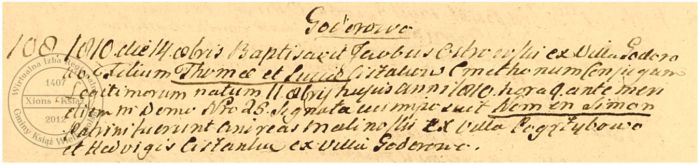 Goderowo
108. 1810. die 14 8bris Baptisavit Jacobus Ostrowski ex Villa Godero
wo. Filium Thomæ et Lucia Cistaków Cmethonum Conjugum
Legitimorum natum 11 8bris hujus anni 1810. hora 9 ante meri
diem in Domo Nro 25. Signata cui imposuit Nomen Simon
Patrini fuerunt Andreas Malinoski ex Villa Pogrzybowo
et Hedvigis Cistanka ex Villa Goderowo.
Wirtualna Izba Regionalna
1407
Xions • Książ
2012
Gminy Książ W